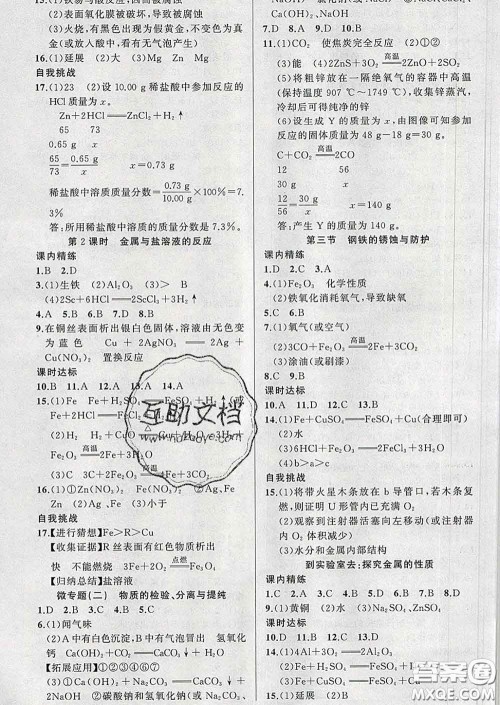 (2)表面氧化膜被破坏,导致被腐蚀
(3)火烧,有黑色固体出现的为假货,不变色为真
金(取样加稀盐酸,有无气泡产生)
16.(1)延展 (2)大 (3)Mg Zn Mg
自我挑战
17.(1)23 (2)设 10.00 g 稀盐酸中参加反应的
HCl 质量为 x。
Zn+2HCl══ZnCl₂+H₂↑
65 73
0.65 g x
65/73=0.65 g/x x=0.73 g
稀盐酸中溶质质量分数=0.73 g/10.00 g×100%=7.3%
答:所用稀盐酸中溶质的质量分数为 7.3%。
第 2 课时 金属与盐溶液的反应
课内精练
1.B 2.D
3.(1)生铁 (2)Al₂O₃ (3)>
(4)2Sc+6HCl══2ScCl₃+3H₂↑
4.D 5.C 6.A 7.B 8.D
9.在铜丝表面析出银白色固体,溶液由无色变
为蓝色 Cu+2AgNO₃══2Ag+
Cu(NO₃)₂ 置换反应
课时达标
10.B 11.A 12.A 13.A 14.A
15.(1)Fe Fe+H₂SO₄══FeSO₄+H₂↑(或
Fe+2HCl══FeCl₂+H₂↑)
(2)H₂ H₂
(3)3C+2Fe₂O₃══(高温)4Fe+3CO₂↑
16.(1)Zn(NO₃)₂ Fe(NO₃)₂ (2)Ag、Fe
Zn Ag、Fe (3)小于
自我挑战
17.【进行猜想】Fe>R>Cu
【收集证据】R 丝表面有红色物质析出
快 不能燃烧 3Fe+2O₂══(点燃)Fe₃O₄
【归纳总结】盐溶液
微专题(二) 物质的检验、分离与提纯
1.D 2.C 3.D 4.B 5.D
6.(1)闻气味
(2)A 中有白色沉淀,B 中无白色沉淀出现 氢氧化
钙 Na₂CO₃+Ca(OH)₂══CaCO₃↓+2NaOH
【拓展应用】①②③④⑤
7.(1)①Na₂CO₃+Ca(OH)₂══CaCO₃↓
+2NaOH ②碳酸钠和氢氧化钠(或 Na₂CO₃、
Ca(OH)₂ NaOH
8.C 9.D 10.B
11.(1)CO₂ 使焦炭完全反应 (2)①②
(3)能 (4)2ZnS+3O₂══(高温)2ZnO+2SO₂
(5)将粗锌放在一隔绝氧气的容器中高温
(保持 907 ℃~1749 ℃),收集锌蒸汽,
冷却后可得纯净的锌
(6)设生成 Y 的质量为 x,由图像可知参加
反应的固体质量为 48 g-18 g=30 g。
C+CO₂══(高温)2CO
12 56
30 g x
12/56=30 g/x x=140 g
答:产生 Y 的质量为 140 g。
第三节 钢铁的锈蚀与防护
课内精练
1.D 2.C 3.A 4.C 5.B
6.(1)Fe₂O₃ 化学性质
(2)铁氧化消耗氧气,导致缺氧
7.(1)氧气(或空气)
(2)3CO+Fe₂O₃══(高温)2Fe+3CO₂
(3)涂油(或刷漆)
8.C 9.B
课时达标
10.D 11.D 12.D 13.B
14.(1)Fe+CuSO₄══FeSO₄+Cu(合理即可)
(2)水
(3)Fe₂O₃+6HCl══2FeCl₃+3H₂O
(4)b>a>c
自我挑战
15.(1)将带火星木条放在 b 导管口,若木条复
燃,则证明 U 形管内已充满 O₂
(2)观察到注射器活塞向左移动(或注射器
内 O₂ 体积减少)
(3)水分和金属内部结构
到实验室去:探究金属的性质
课内精练
1.D 2.A 3.C 4.B 5.B 6.C 7.B 8.D
9.(1)黄铜 (2)水 (3)Na₂SO₄、ZnSO₄
课时达标
10.D 11.D 12.B 13.B
14.(1)4Al+3O₂══2Al₂O₃
(2)Fe+H₂SO₄══FeSO₄+H₂↑
(3)Fe+CuSO₄══FeSO₄+Cu
15.(1)延展 (2)B
互助文档
答案圈
MXQE.COM